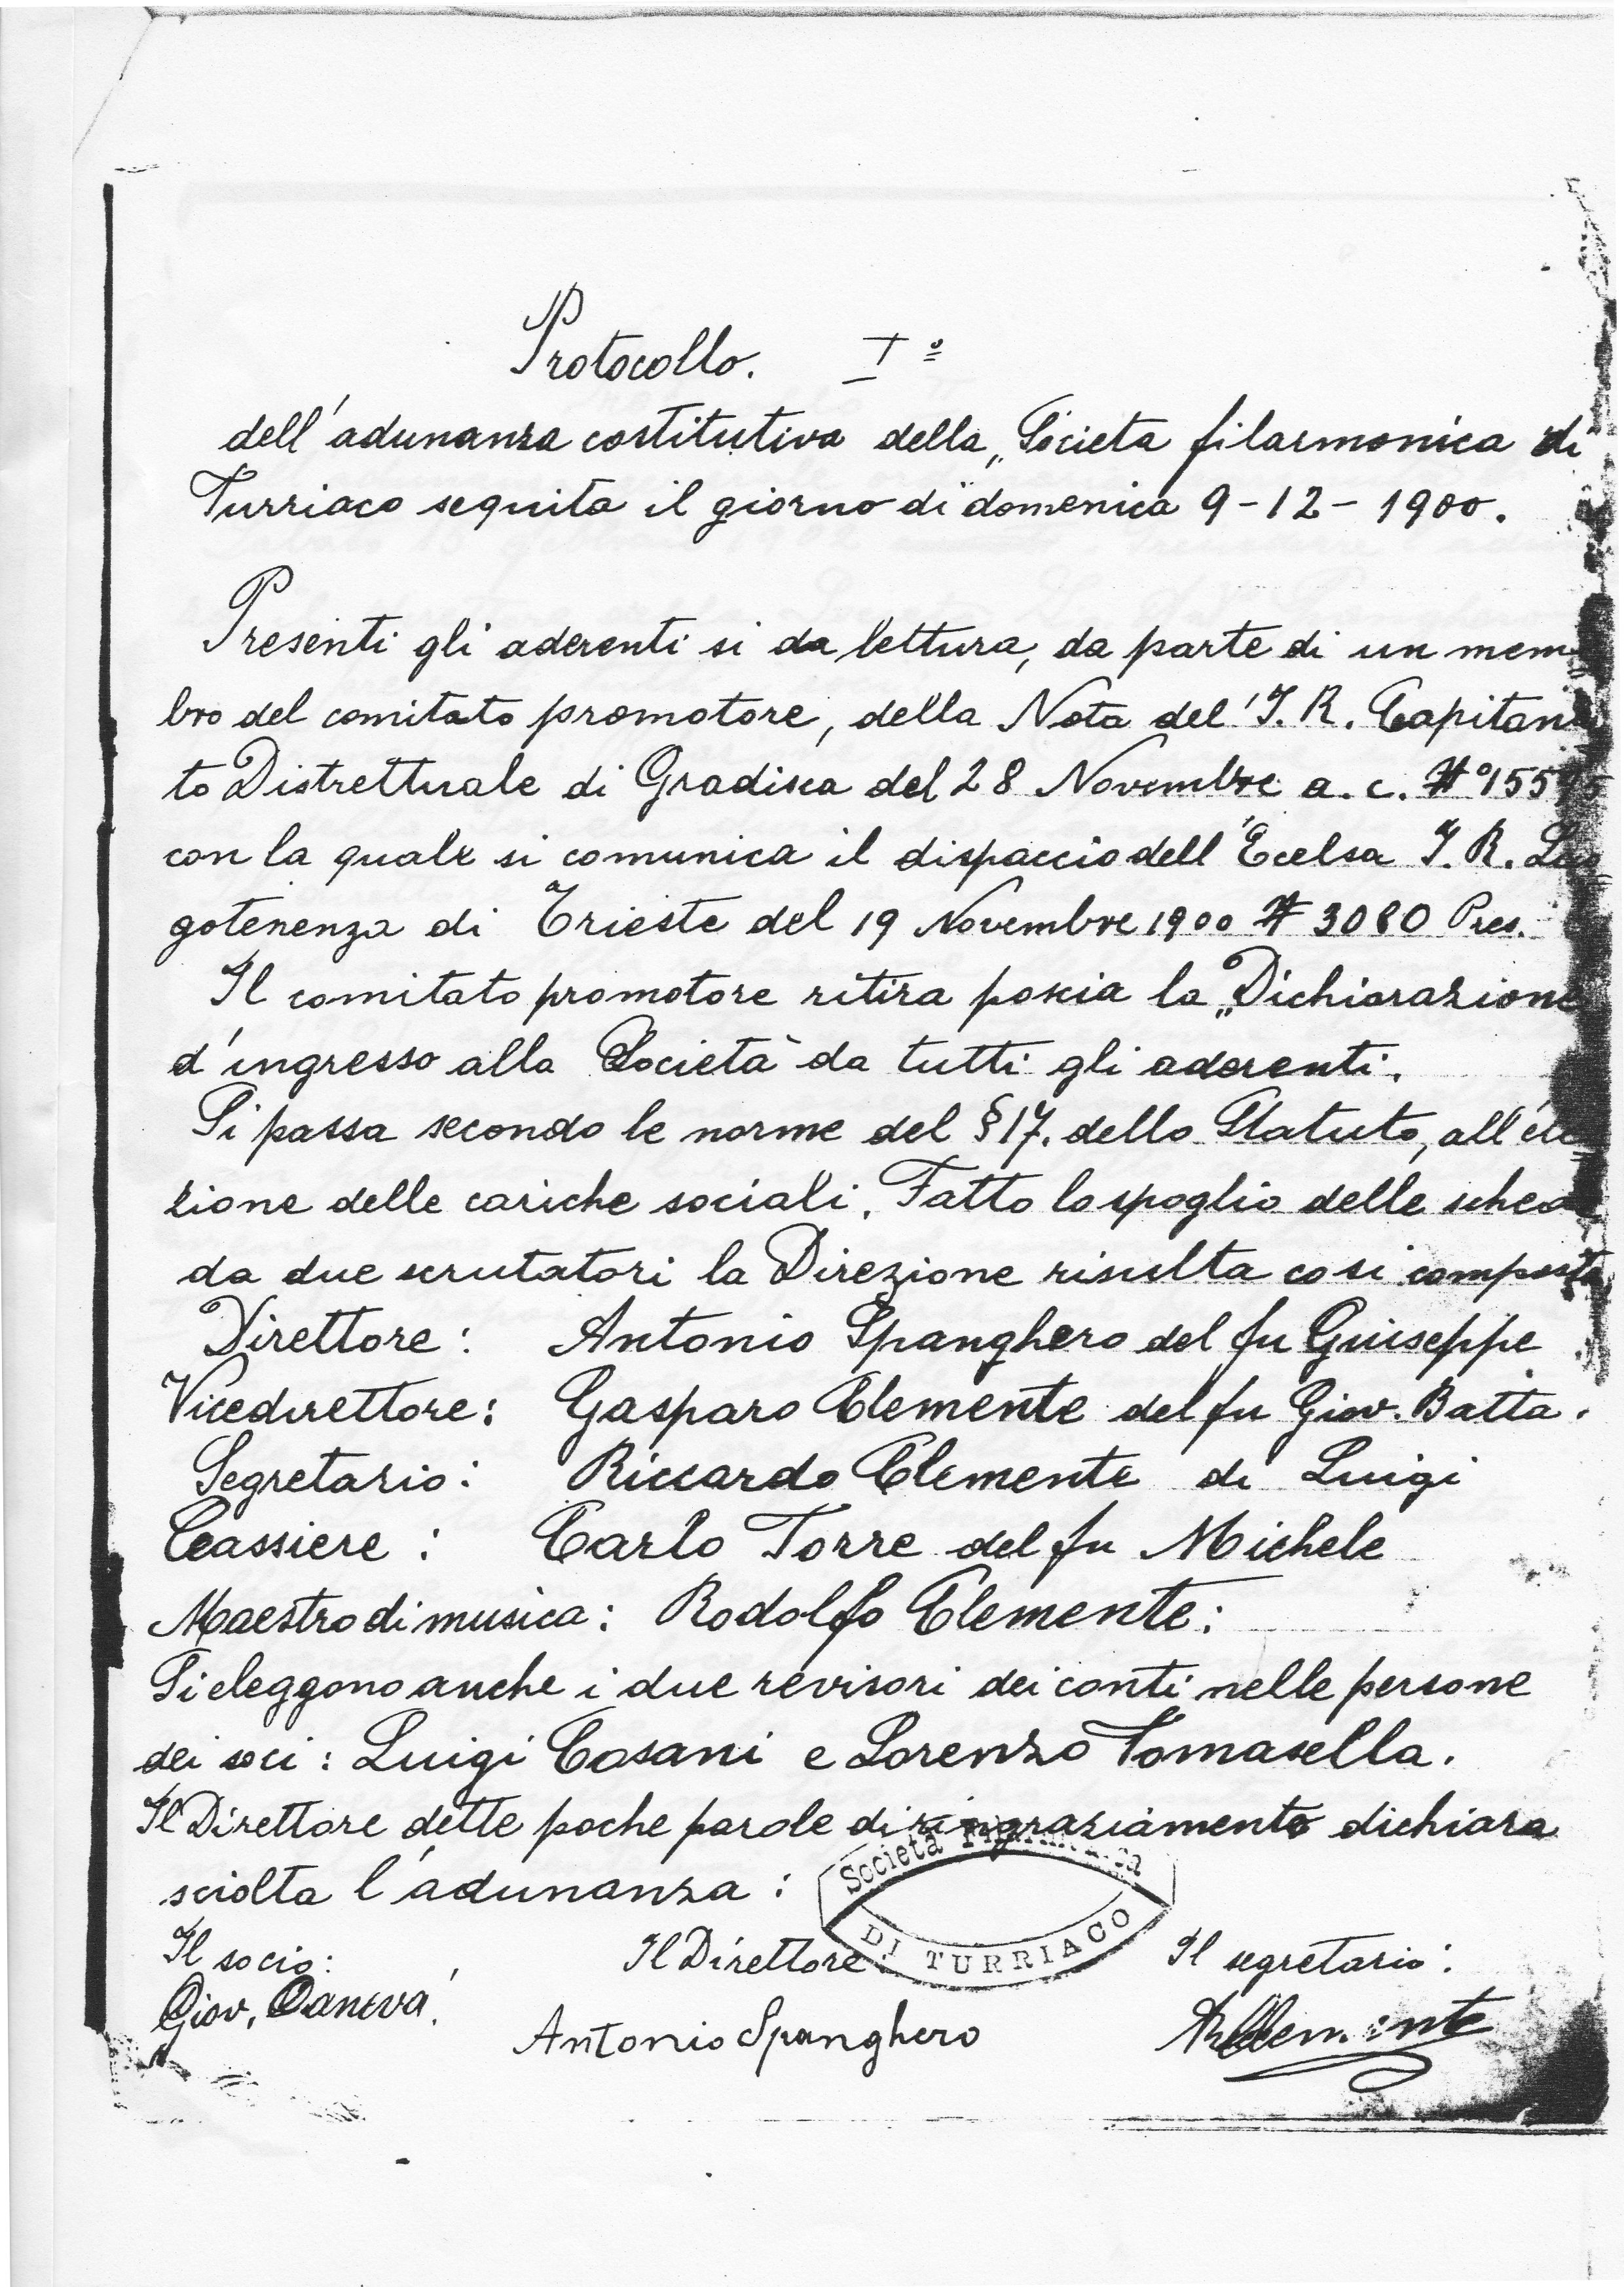 Protocollo. I º
dell'adunanza costitutiva della „Societa filarmonica di"
Turriaco seguita il giorno di domenica 9-12-1900.
Presenti gli aderenti si da lettura, da parte di un mem-
bro del comitato promotore, della Nota del' I. R. Capitana
to Distrettuale di Gradisca del 28 Novembre a. c. Nº
con la quale si comunica il dispaccio dell'Ecelsa I. R. Luo
gotenenza di Trieste del 19 Novembre 1900 N 3080 Pres.
Il comitato promotore ritira poscia la „Dichiarazione
d'ingresso alla Società" da tutti gli aderenti.
Si passa secondo le norme del § 17. dello Statuto, all'ele
zione delle cariche sociali. Fatto lo spoglio delle schede
da due scrutatori la Direzione risulta cosi composta
Direttore: Antonio Spanghero del fu Guiseppe
Vicedirettore: Gasparo Clemente del fu Giov. Batta.
Segretario: Riccardo Clemente di Luigi
Cassiere: Carlo Torre del fu Michele
Maestro di musica: Rodolfo Clemente:
Si eleggono anche i due revisori dei conti nelle persone
dei soci: Luigi Cosani e Lorenzo Tomasella.
Il Direttore dette poche parole di ringraziamento dichiara
sciolta l'adunanza:
Società Filarmonica
DI TURRIACO
Il socio: Il Direttore Il segretario:
Giov. Antonio Spanghero RClemente